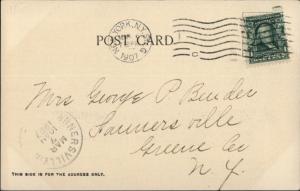 NEW YORK, N.Y.
1907
POST CARD.
Mrs George P. Bender
Tannersville
Greene Co
N. Y.
TANNERSVILLE
MAR
1907
THIS SIDE IS FOR THE ADDRESS ONLY.